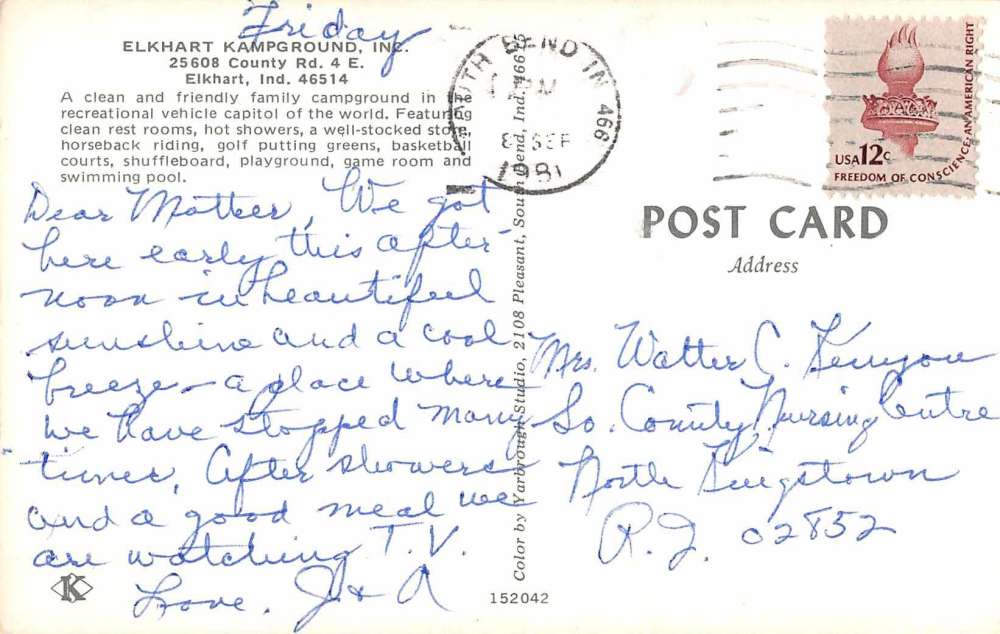 Friday
ELKHART KAMPGROUND, INC.
25608 County Rd. 4 E.
Elkhart, Ind. 46514
A clean and friendly family campground in the
recreational vehicle capitol of the world. Featuring
clean rest rooms, hot showers, a well-stocked store,
horseback riding, golf putting greens, basketball
courts, shuffleboard, playground, game room and
swimming pool.
Dear Mother, We got
here early this after-
noon in beautiful
sunshine and a cool
breeze – a place where
we have stopped many
times. After showers
and a good meal we
are watching T.V.
Love, J & A
K
Color by Yarbrough Studio, 2108 Pleasant, South Bend, Ind. 46615
SOUTH BEND IN 466
8 SEP
1981
USA 12c
FREEDOM OF CONSCIENCE-AN AMERICAN RIGHT
POST CARD
Address
Mrs. Walter C. Kenyon
So. County Nursing Centre
North Kingstown
R.I. 02852
152042